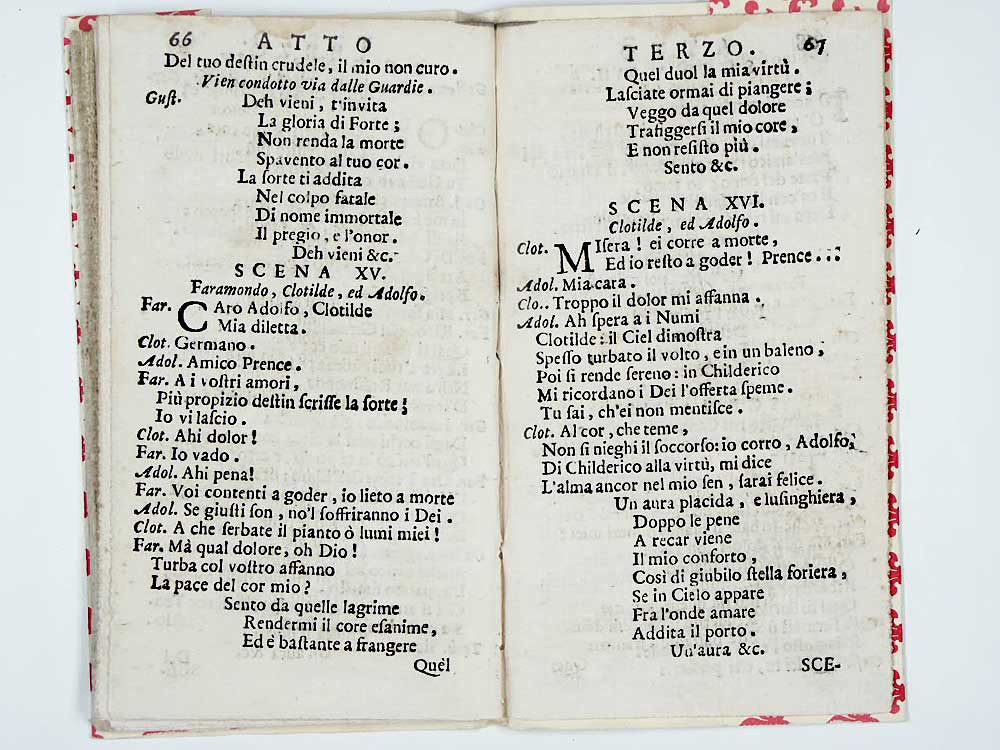 66 ATTO
Del tuo destin crudele, il mio non curo.
Vien condotto via dalle Guardie.
Gust. Deh vieni, t'invita
La gloria di Forte;
Non renda la morte
Spavento al tuo cor.
La sorte ti addita
Nel colpo fatale
Di nome immortale
Il pregio, e l'onor.
Deh vieni &c.
SCENA XV.
Faramondo, Clotilde, ed Adolfo.
Far. CAro Adolfo, Clotilde
Mia diletta.
Clot. Germano.
Adol. Amico Prence.
Far. A i vostri amori,
Più propizio destin scrisse la sorte;
Io vi lascio.
Clot. Ahi dolor!
Far. Io vado.
Adol. Ahi pena!
Far. Voi contenti a goder, io lieto a morte
Adol. Se giusti son, no'l soffriranno i Dei.
Clot. A che serbate il pianto ò lumi miei!
Far. Mà qual dolore, oh Dio!
Turba col vostro affanno
La pace del cor mio?
Sento da quelle lagrime
Rendermi il core esanime,
Ed è bastante a frangere
Quel
TERZO. 67
Quel duol la mia virtù.
Lasciate ormai di piangere;
Veggo da quel dolore
Trafiggersi il mio core,
E non resisto più.
Sento &c.
SCENA XVI.
Clotilde, ed Adolfo.
Clot. MIsera! ei corre a morte,
Ed io resto a goder! Prence...
Adol. Mia cara.
Clo.. Troppo il dolor mi affanna.
Adol. Ah spera a i Numi
Clotilde: il Ciel dimostra
Spesso turbato il volto, e in un baleno,
Poi si rende sereno: in Childerico
Mi ricordano i Dei l'offerta speme.
Tu sai, ch'ei non mentisce.
Clot. Al cor, che teme,
Non si nieghi il soccorso: io corro, Adolfo,
Di Childerico alla virtù, mi dice
L'alma ancor nel mio sen, sarai felice.
Un aura placida, e lusinghiera,
Doppo le pene
A recar viene
Il mio conforto,
Così di giubilo stella foriera,
Se in Cielo appare
Fra l'onde amare
Addita il porto.
Un'aura &c.
SCE-